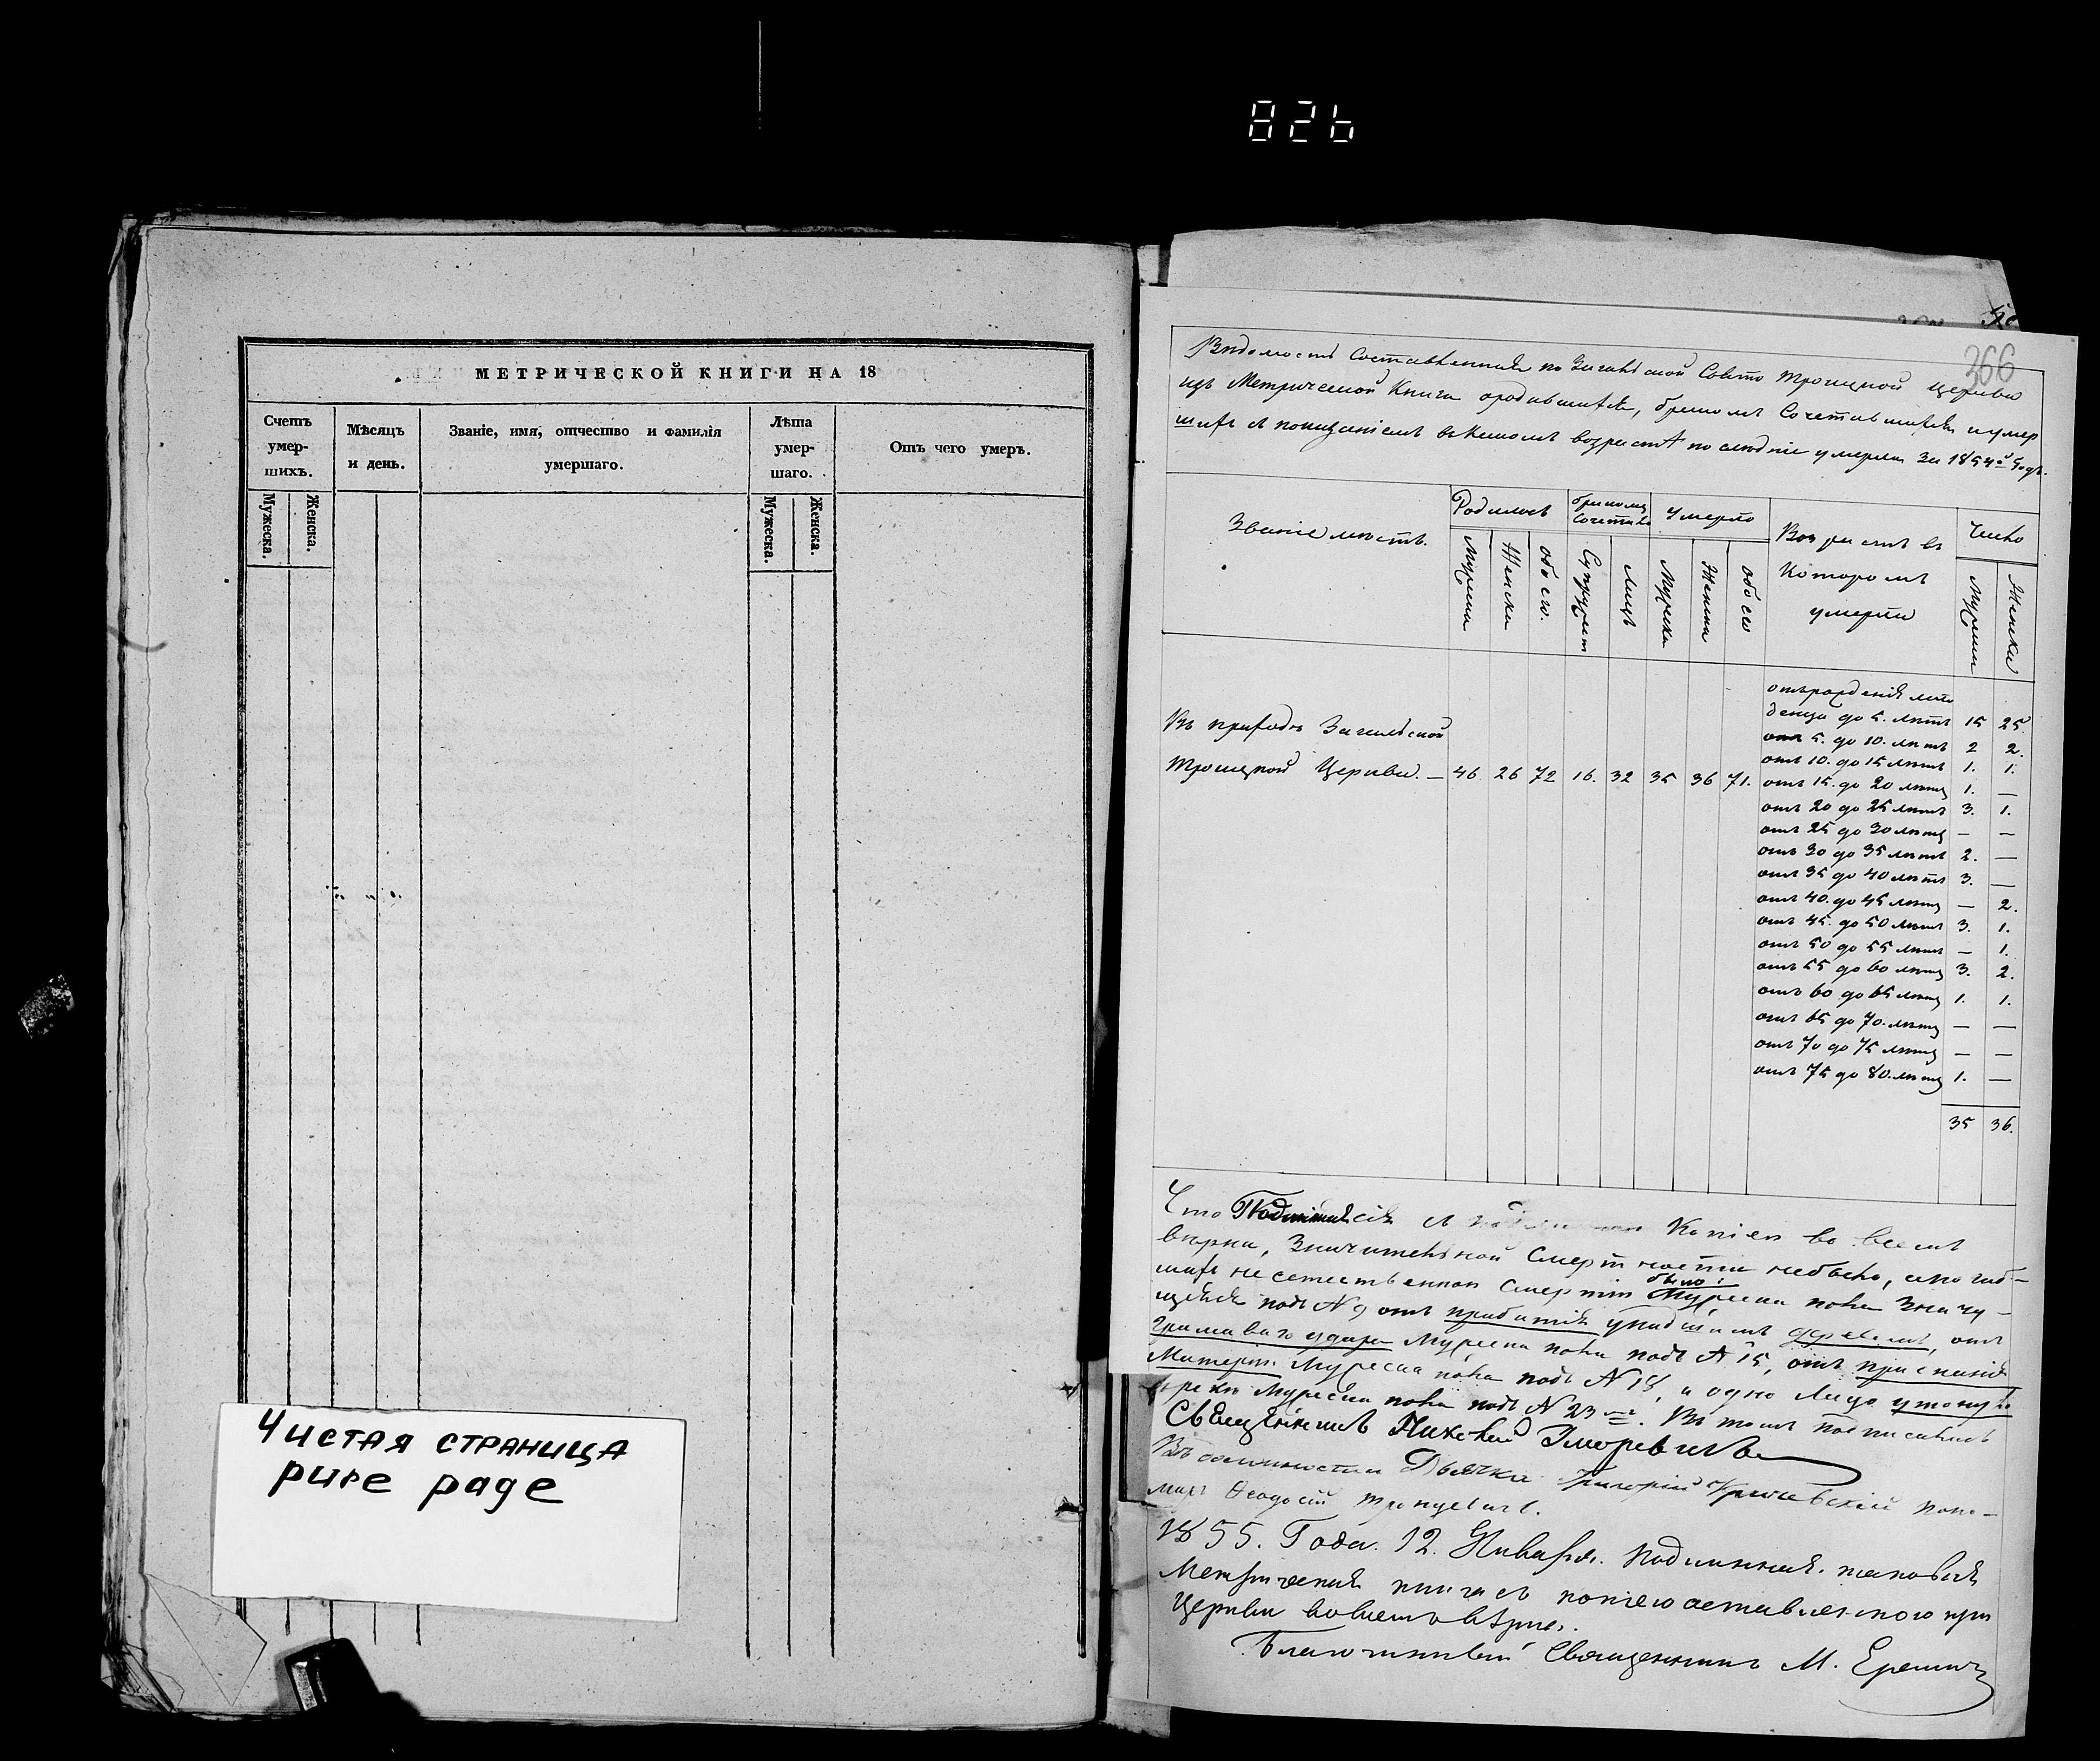 826
МЕТРИЧЕСКОЙ КНИГИ НА 18
Счетъ умер-шихъ.
Мѣсяцъ и день.
Званіе, имя, отчество и фамилія умершаго.
Лѣта умер-шаго.
Отъ чего умеръ.
Мужеска.
Женска.
Мужеска.
Женска.
Чистая страница
pure page
366
Вѣдомость Составленная по Свято Троицкой Церкви
изъ Метрической Книги о родившихся, бракомъ Сочетавшихся и умер
шихъ съ показаніемъ въ какомъ возрастѣ послѣдніе умерли За 1854й Годъ.
Званіе мѣстъ.
Родилось
бракомъ Сочетано
Умерло
Возрастъ въ
Которомъ
умерли
Число
Мужеска
Женска
обоего.
Супружест
Лицъ
Мужеска
Женска
обоего
Мужеска
Женска
Въ приходѣ
Троицкой Церкви. — 46 26 72 16. 32 35 36 71.
отъ рожденія мла
денца до 5. лѣтъ 15 25.
отъ 5. до 10. лѣтъ 2 2.
отъ 10. до 15 лѣтъ 1. 1.
отъ 15. до 20 лѣтъ 1. —
отъ 20 до 25 лѣтъ 3. 1.
отъ 25 до 30 лѣтъ — —
отъ 30 до 35 лѣтъ 2. —
отъ 35 до 40 лѣтъ 3. —
отъ 40. до 45 лѣтъ — 2.
отъ 45. до 50 лѣтъ 3. 1.
отъ 50 до 55 лѣтъ — 1.
отъ 55 до 60 лѣтъ 3. 2.
отъ 60 до 65 лѣтъ 1. 1.
отъ 65 до 70. лѣтъ — —
отъ 70 до 75 лѣтъ — —
отъ 75 до 80. лѣтъ 1. —
35 36.
Что сія съ Копіею во всемъ
вѣрна, Значительной Смертности небыло,
шихъ неестественною Смертію было: Мужеска пола Значу-
щійся подъ N 9 отъ прибитія упавшимъ деревомъ, отъ
удара Мужеска пола подъ N 15, отъ приспанія
Матерію Мужеска пола подъ N 18, и одно Лицо утонуло
Мужеска пола подъ N 23 Въ томъ подписались
Священникъ
Въ должности Дьячка Григорій Поно-
марь Ѳеодосій
1855. Года. 12. Января. Подлинная таковая
Метрическая книга съ копіею оставленною при
Церкви во всемъ вѣрна.
Благочинный Священникъ М.